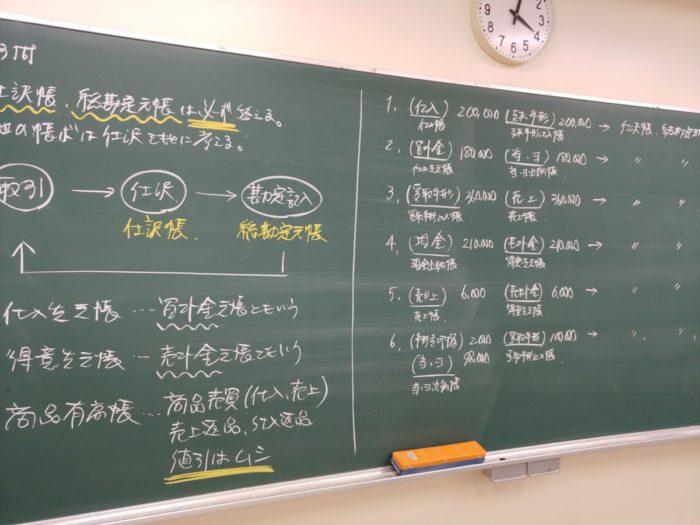 仕訳帳、総勘定元帳は必ず答える。
の帳ぼは仕訳をもとに考える。
取引 → 仕訳 → 勘定記入
仕訳帳 総勘定元帳
仕入先元帳…買掛金元帳ともいう
得意先元帳…売掛金元帳ともいう
商品有高帳…商品売買(仕入、売上)
売上返品、仕入返品
値引はムシ
1. (仕入) 200,000 (支払手形) 200,000 → 仕訳帳、総勘定
仕入帳 支払手形記入帳
2. (買掛金) 180,000 (当・ヨ) 180,000 → 〃 〃
仕入先元帳 当・ヨ出納帳
3. (受取手形) 360,000 (売上) 360,000 → 〃 〃
受取手形記入帳 売上帳
4. (現金) 210,000 (売掛金) 210,000 → 〃 〃
現金出納帳 得意先元帳
5. (売上) 6,000 (売掛金) 6,000 → 〃 〃
売上帳 得意先元帳
6. (手形売却損) 2,000 (受取手形) 100,000 → 〃 〃
(当・ヨ) 98,000 受取手形記入帳
当・ヨ出納帳